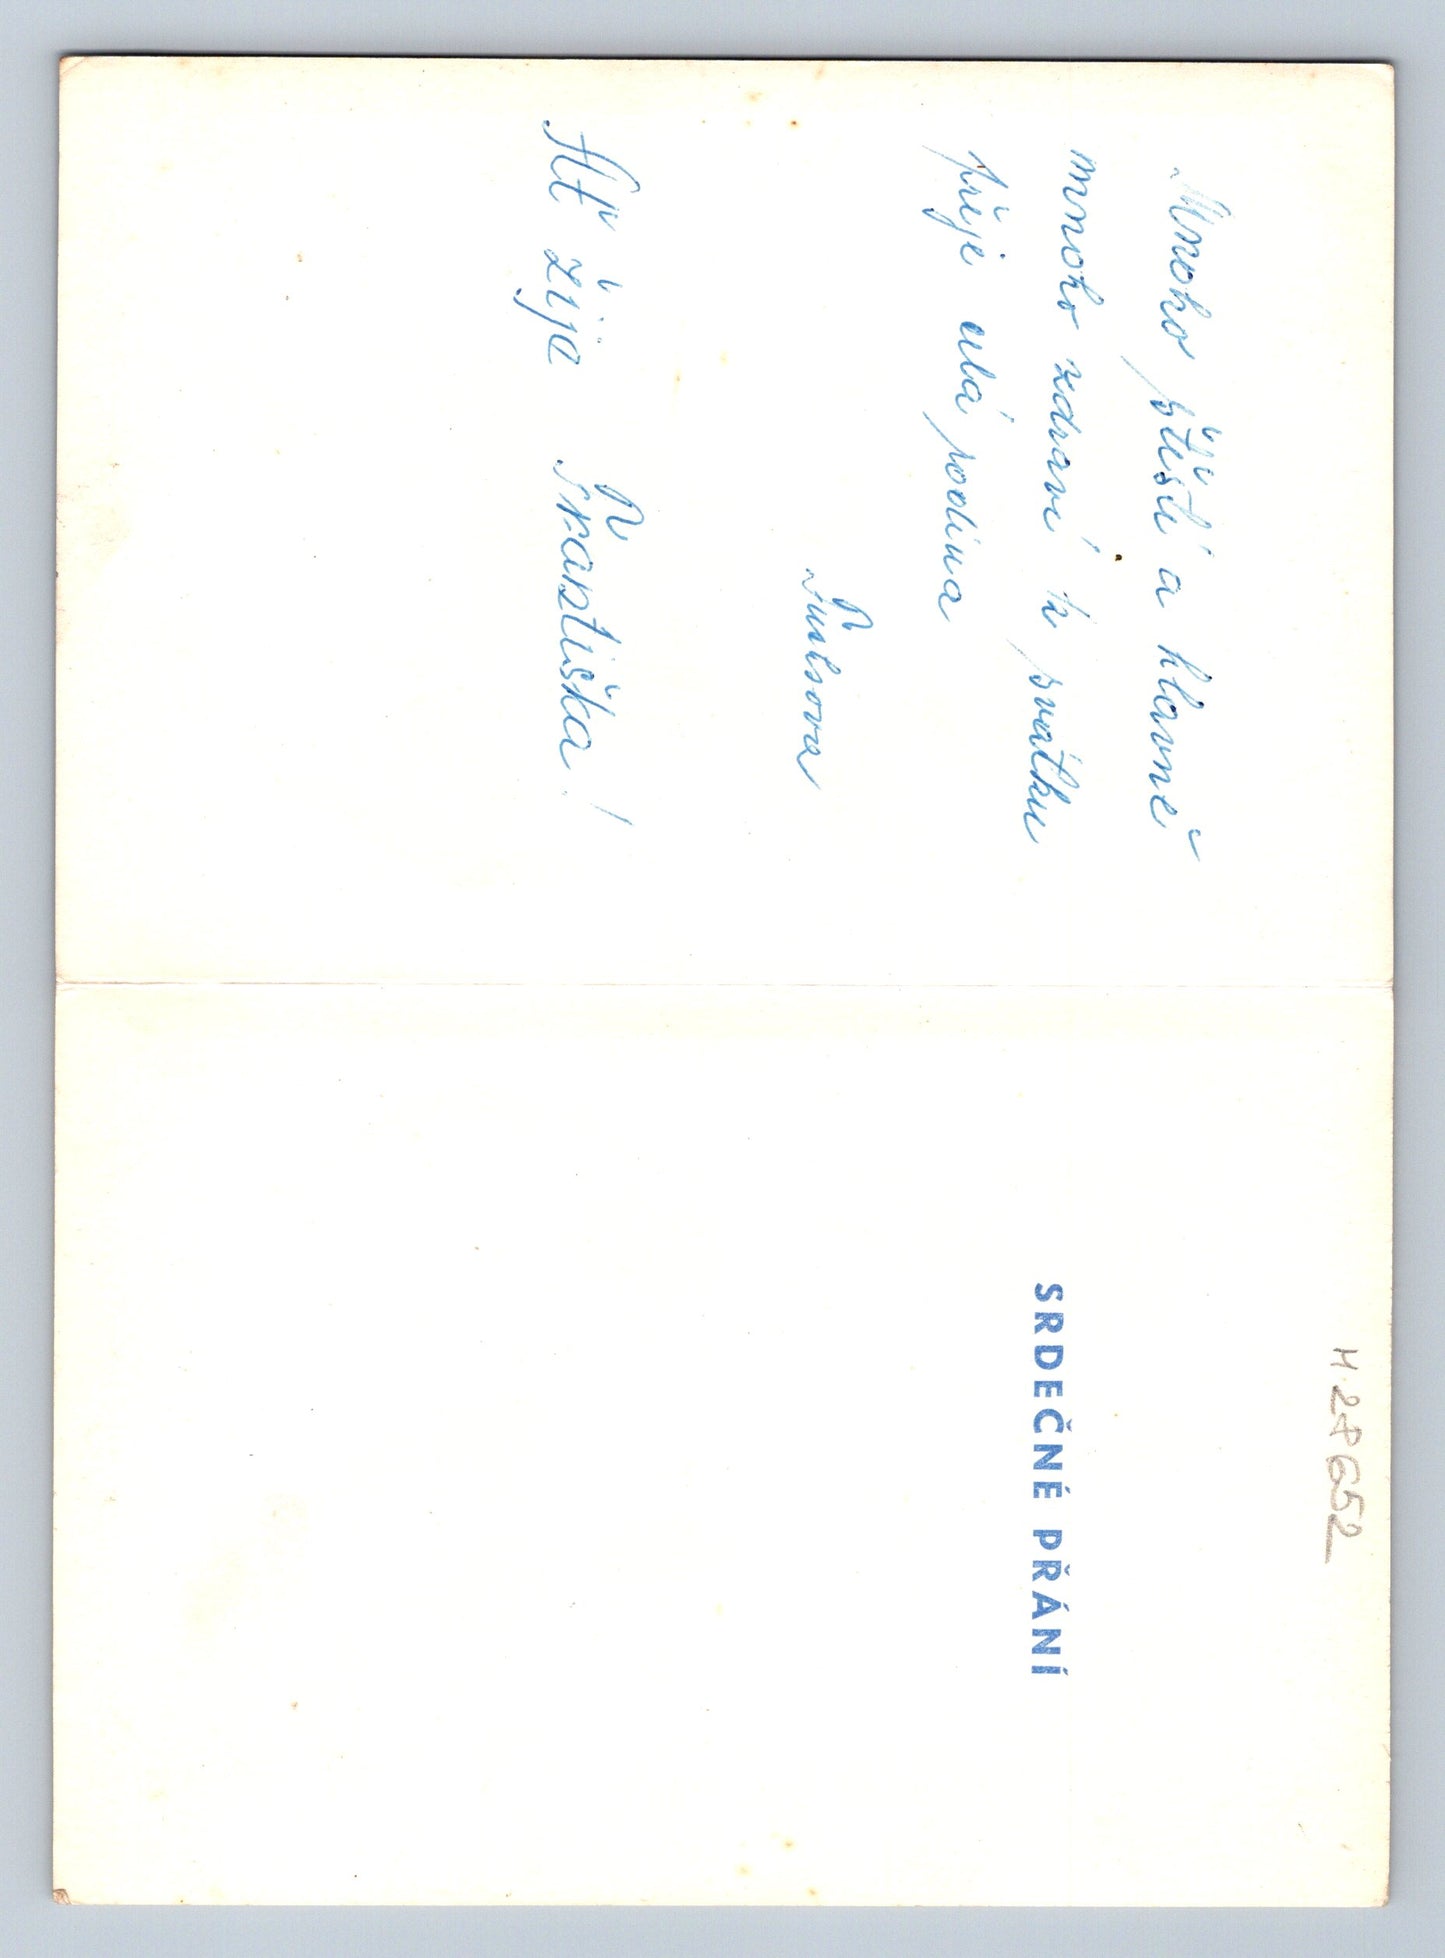 Mnoho štěstí a hlavně
mnoho zdraví k svátku
přeje celá rodina
Ať žije Františka!
SRDEČNÉ PŘÁNÍ